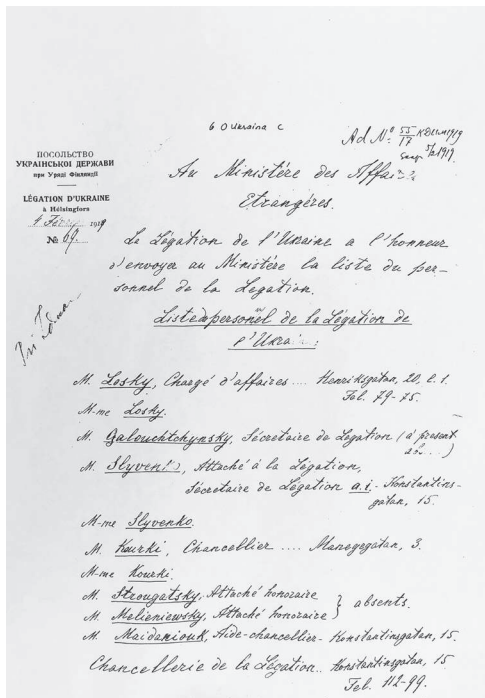 6 O Ukraina C
Ad No 55/17 KD UM 1919
5/2 1919.
ПОСОЛЬСТВО
УКРАЇНСЬКОЇ ДЕРЖАВИ
при Уряді Фінляндії
LÉGATION D'UKRAINE
à Helsingfors
4 Févr. 1919
№ 69.
Au Ministére des Affaires
Etrangéres.
La Légation de l'Ukraine a l'honneur
d'envoyer au Ministére la liste du per-
sonnel de la Legation.
Liste du personnel de la Légation de
l'Ukraine:
M. Losky, Chargé d'affaires .... Henriksgatan, 20, l. 1.
Tel. 79-75.
M-me Losky.
M. Galouchtchynsky, Sécretaire de Legation (à présent
M. Slyvenko, Attaché à la Légation,
Sécretaire de Légation a.i. - Konstantins-
gatan, 15.
M-me Slyvenko.
M. Kourki, Chancellier .... Manegegatan, 3.
M-me Kourki.
M. Strougatsky, Attaché honoraire
M. Melieniewsky, Attaché honoraire } absents.
M. Maidaniouk, Aide-chancellier - Konstantinsgatan, 15.
Chancellerie de la Légation .. Konstantinsgatan, 15
Tel. 112-99.